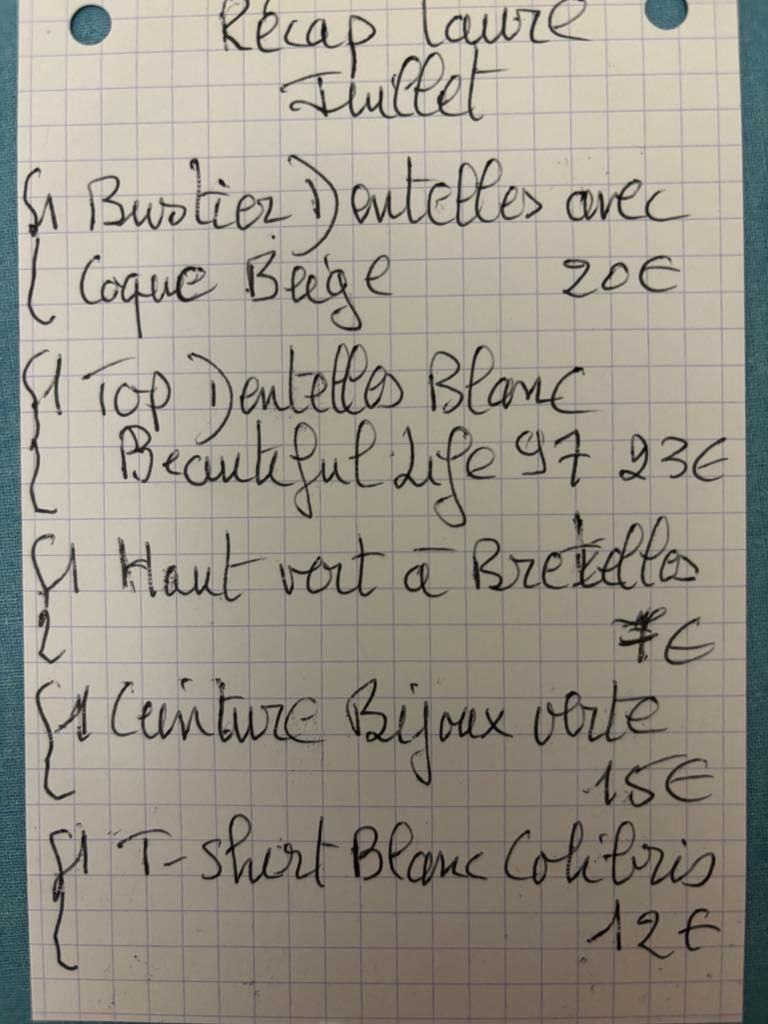 Récap Laure
Juillet
1 Bustier Dentelles avec
Coque Beige 20€
1 Top Dentelles Blanc
Beautiful Life 97 23€
1 Haut vert à Bretelles
7€
1 Ceinture Bijoux verte
15€
1 T-shirt Blanc Colibris
12€